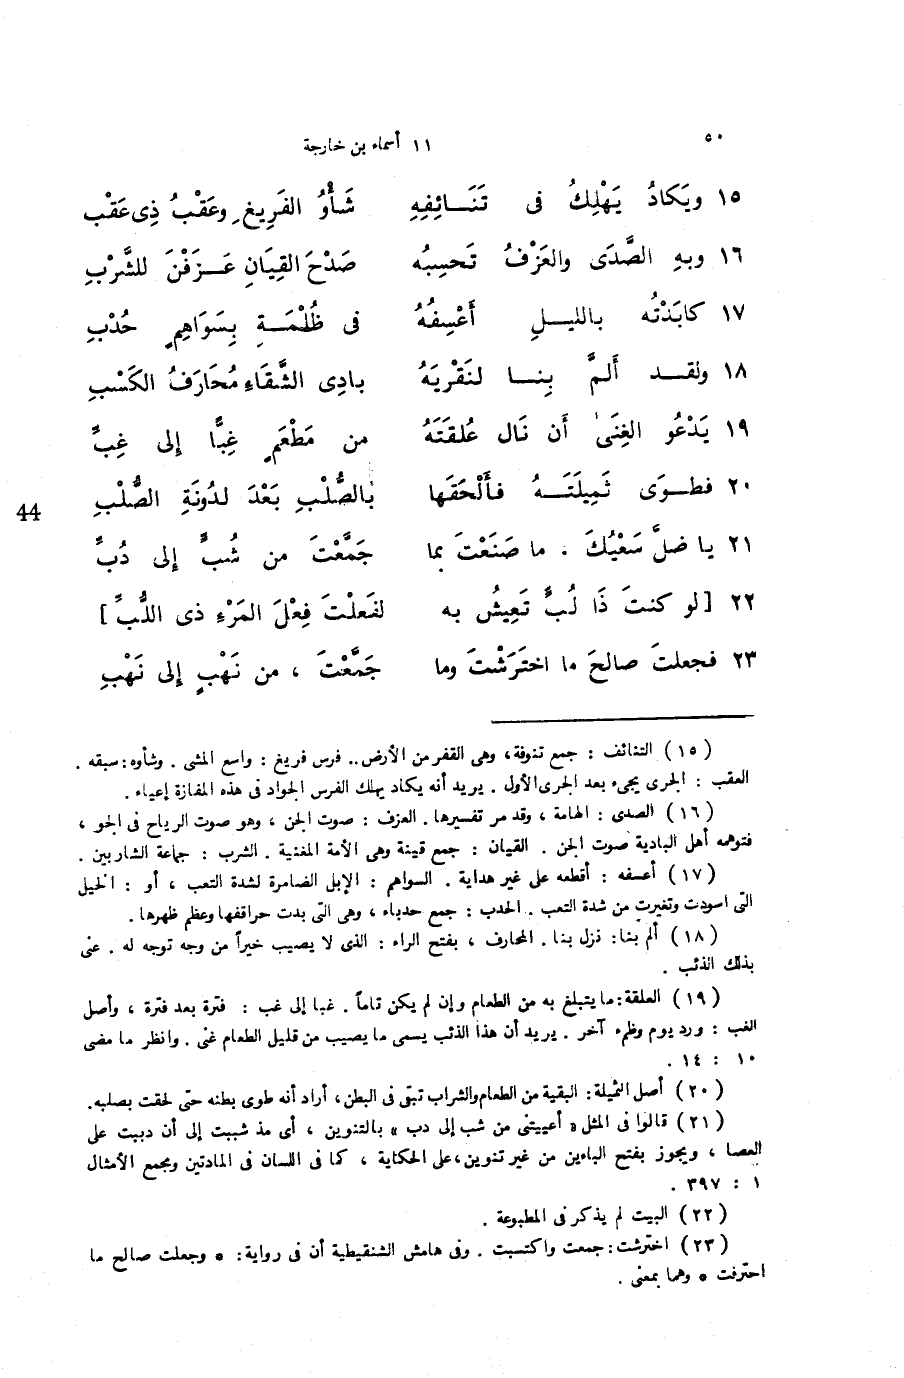 ٥٠
١١ أسماء بن خارجة
١٥ ويَكادُ يَهْلِكُ فى تَنَـائِفِهِ شَأْوُ الفَرِيغِ وعَقْبُ ذِى عَقْبِ
١٦ وبهِ الصَّدَى والعَزْفُ تَحسِبُه صَدْحَ القِيَانِ عَـزَفْنَ للشَّرْبِ
١٧ كابَدْتُه بالليـلِ أَعْسِفُهُ فى ظُلْمَـةٍ بِسَوَاهِمٍ حُدْبِ
١٨ ولقـد أَلمَّ بِنـا لنَقْرِيَهُ بادِى الشَّقَاءِ مُحَارَفُ الكَسْبِ
١٩ يَدْعُو الغِنَى أَن نَال عُلقَتَهُ من مَطْعَمٍ غِبًّا إِلى غِبِّ
٢٠ فطـوَى ثَمِيلَتَـهُ فأَلْحَقَها بالصُّلْبِ بَعْدَ لدُونَةِ الصُّلْبِ
44
٢١ يا ضلَّ سَعْيُكَ . ما صَنَعْتَ بما جَمَّعْتَ من شُبٍّ إِلى دُبِّ
٢٢ [لو كنتَ ذَا لُبٍّ تَعِيشُ به لفَعلْتَ فِعْلَ المَرْءِ ذى اللُّبِّ]
٢٣ فجعلتَ صالحَ ما اخْتَرَشْتَ وما جَمَّعْتَ ، من نَهْبٍ إِلى نَهْبِ
(١٥) التنائف : جمع تنوفة، وهى القفر من الأرض.. فرس فريغ : واسع المشى . وشأوه: سبقه .
العقب : الجرى يجىء بعد الجرى الأول . يريد أنه يكاد يهلك الفرس الجواد فى هذه المفازة إعياء .
(١٦) الصدى : الهامة ، وقد مر تفسيرها . العزف : صوت الجن ، وهو صوت الرياح فى الجو ،
فتوهمه أهل البادية صوت الجن . القيان : جمع قينة وهى الأمة المغنية . الشرب : جماعة الشاربين .
(١٧) أعسفه : أقطعه على غير هداية . السواهم : الإبل الضامرة لشدة التعب ، أو : الخيل
التى اسودت وتغيرت من شدة التعب . الحدب : جمع حدباء ، وهى التى بدت حراقفها وعظم ظهرها .
(١٨) ألم بنا : نزل بنا . المحارف ، بفتح الراء : الذى لا يصيب خيراً من وجه توجه له . عنى
بذلك الذئب .
(١٩) العلقة: ما يتبلغ به من الطعام وإن لم يكن تاماً . غبا إلى غب : فترة بعد فترة ، وأصل
الغب : ورد يوم وظمء آخر . يريد أن هذا الذئب يسمى ما يصيب من قليل الطعام غنى . وانظر ما مضى
١٠ : ١٤ .
(٢٠) أصل الثميلة: البقية من الطعام والشراب تبقى فى البطن، أراد أنه طوى بطنه حتى لحقت بصلبه.
(٢١) قالوا فى المثل « أعييتنى من شب إلى دب » بالتنوين ، أى مذ شببت إلى أن دببت على
العصا ، ويجوز بفتح الباءين من غير تنوين، على الحكاية ، كما فى اللسان فى المادتين ومجمع الأمثال
١ : ٣٩٧ .
(٢٢) البيت لم يذكر فى المطبوعة .
(٢٣) اخترشت : جمعت واكتسبت . وفى هامش الشنقيطية أن فى رواية: * وجعلت صالح ما
احترفت * وهما بمعنى .